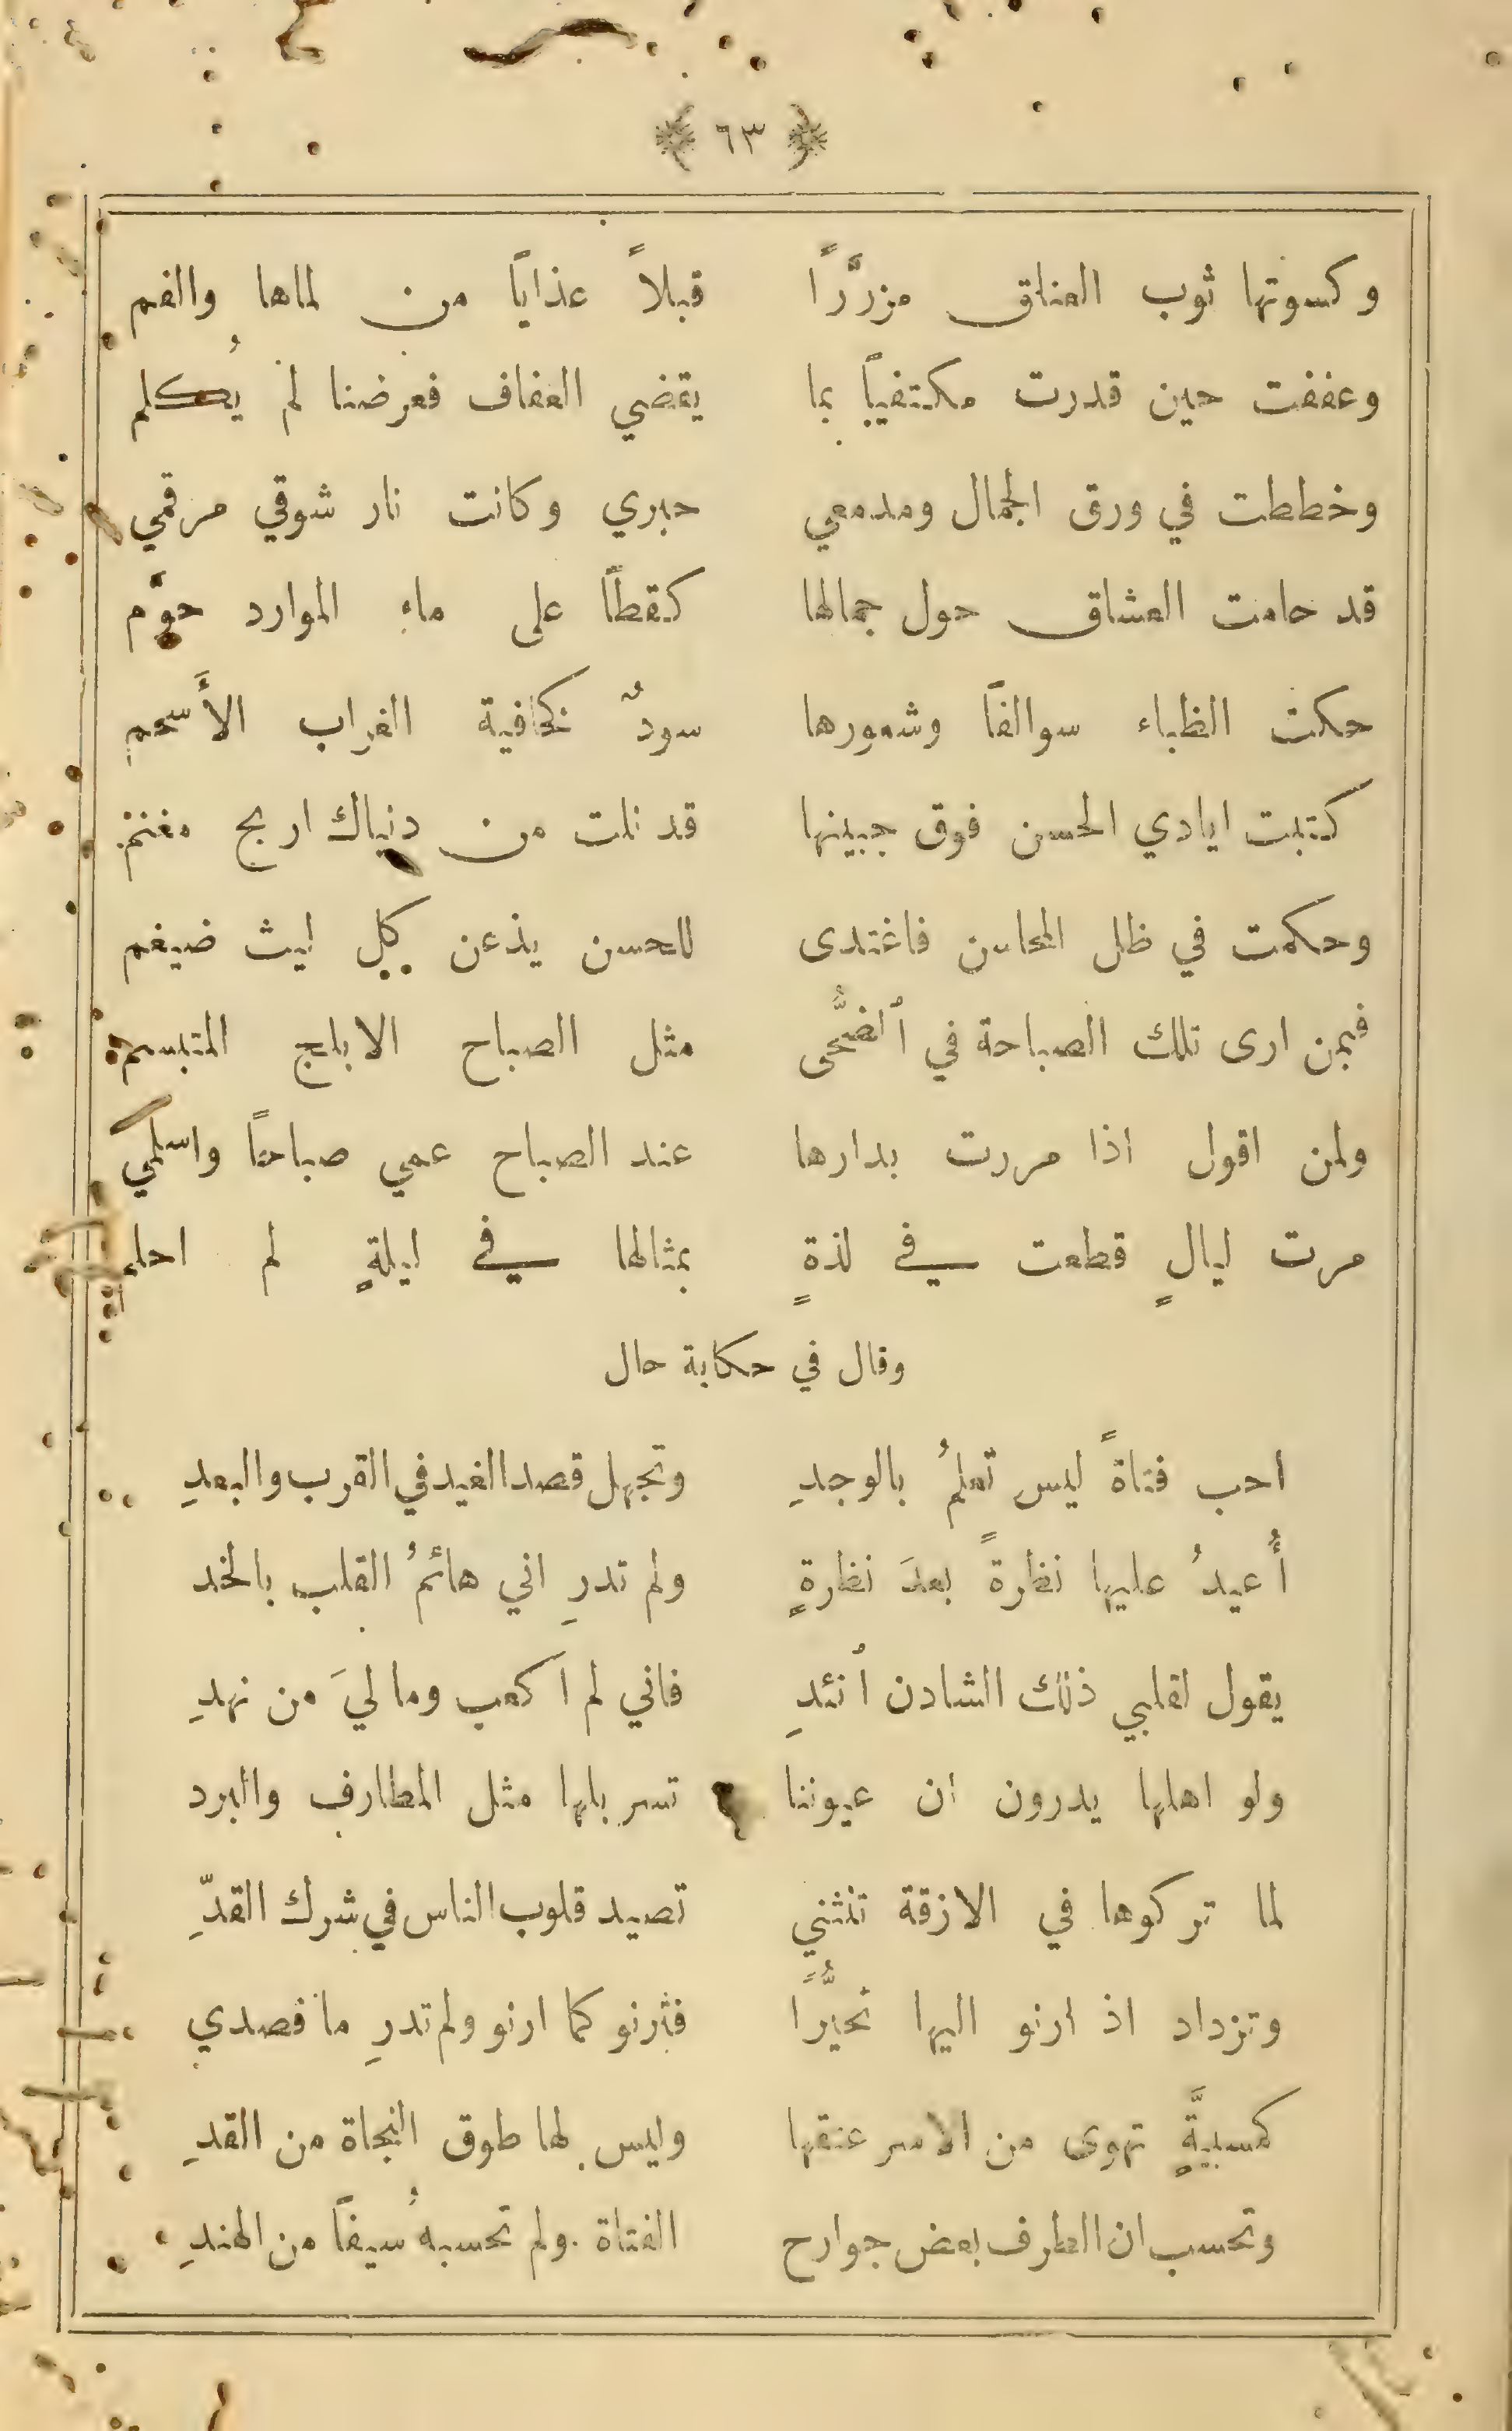 ٦٣
وكسوتها ثوب العناق مزرَّرًا قبلاً عذابًا من لماها والفم
وعففت حين قدرت مكتفيًا بما يقضي العفاف فعرضنا لم يُكلم
وخططت في ورق الجمال ومدمعي حبري وكانت نار شوقي مرقمي
قد حامت العشاق حول جمالها كقطًا على ماء الموارد حوَّم
حكت الظباء سوالفًا وشعورها سودٌ كخافية الغراب الأَسحم
كتبت ايادي الحسن فوق جبينها قد نلت من دنياك اربح مغنم
وحكمت في ظل المحاسن فاغتدى للحسن يذعن كل ليث ضيغم
فبمن ارى تلك الصباحة في ٱلضُّحى مثل الصباح الابلج المتبسم
ولمن اقول اذا مررت بدارها عند الصباح عمي صباحًا واسلمي
مرت ليالٍ قطعت في لذةٍ بمثالها في ليلةٍ لم احلم
وقال في حكاية حال
احب فتاةً ليس تعلمُ بالوجدِ وتجهل قصد الغيد في القرب والبعدِ
أُعيدُ عليها نظرةً بعدَ نظرةٍ ولم تدرِ اني هائمُ القلب بالخد
يقول لقلبي ذلك الشادن ٱتئدِ فاني لم اكعب وما ليَ من نهدِ
ولو اهلها يدرون ان عيوننا تسربلها مثل المطارف والبرد
لما تركوها في الازقة تنثني تصيد قلوب الناس في شرك القدِّ
وتزداد اذ ارنو اليها تحيُّرًا فترنو كما ارنو ولم تدرِ ما قصدي
كمسبيَّةٍ تهوى من الاسر عنقها وليس لها طوق النجاة من القدِ
وتحسب ان الطرف بعض جوارح الفتاة ولم تحسبهُ سيفًا من الهندِ